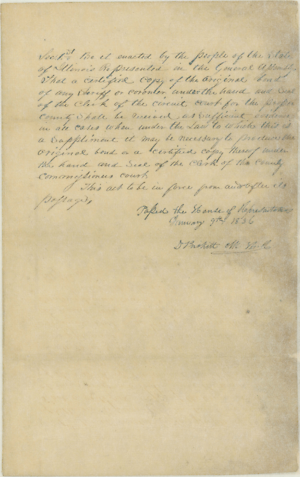 Sec 1st Be it enacted by the people of the State
of Illinois represented in the General Assembly
That a certified copy of the original bond
of any Sheriff or coroner under the hand and seal
of the Clerk of the circuit court for the proper
county shall be received as sufficient evidence
in all cases when under the Law to which this is
a Supplement it may be necessary to produce the
original bond or a certified copy thereof under
the hand and seal of the Clerk of the county
commissioners court
This act to be in force from and after its
passage
Passed the House of Representatives
January 9th